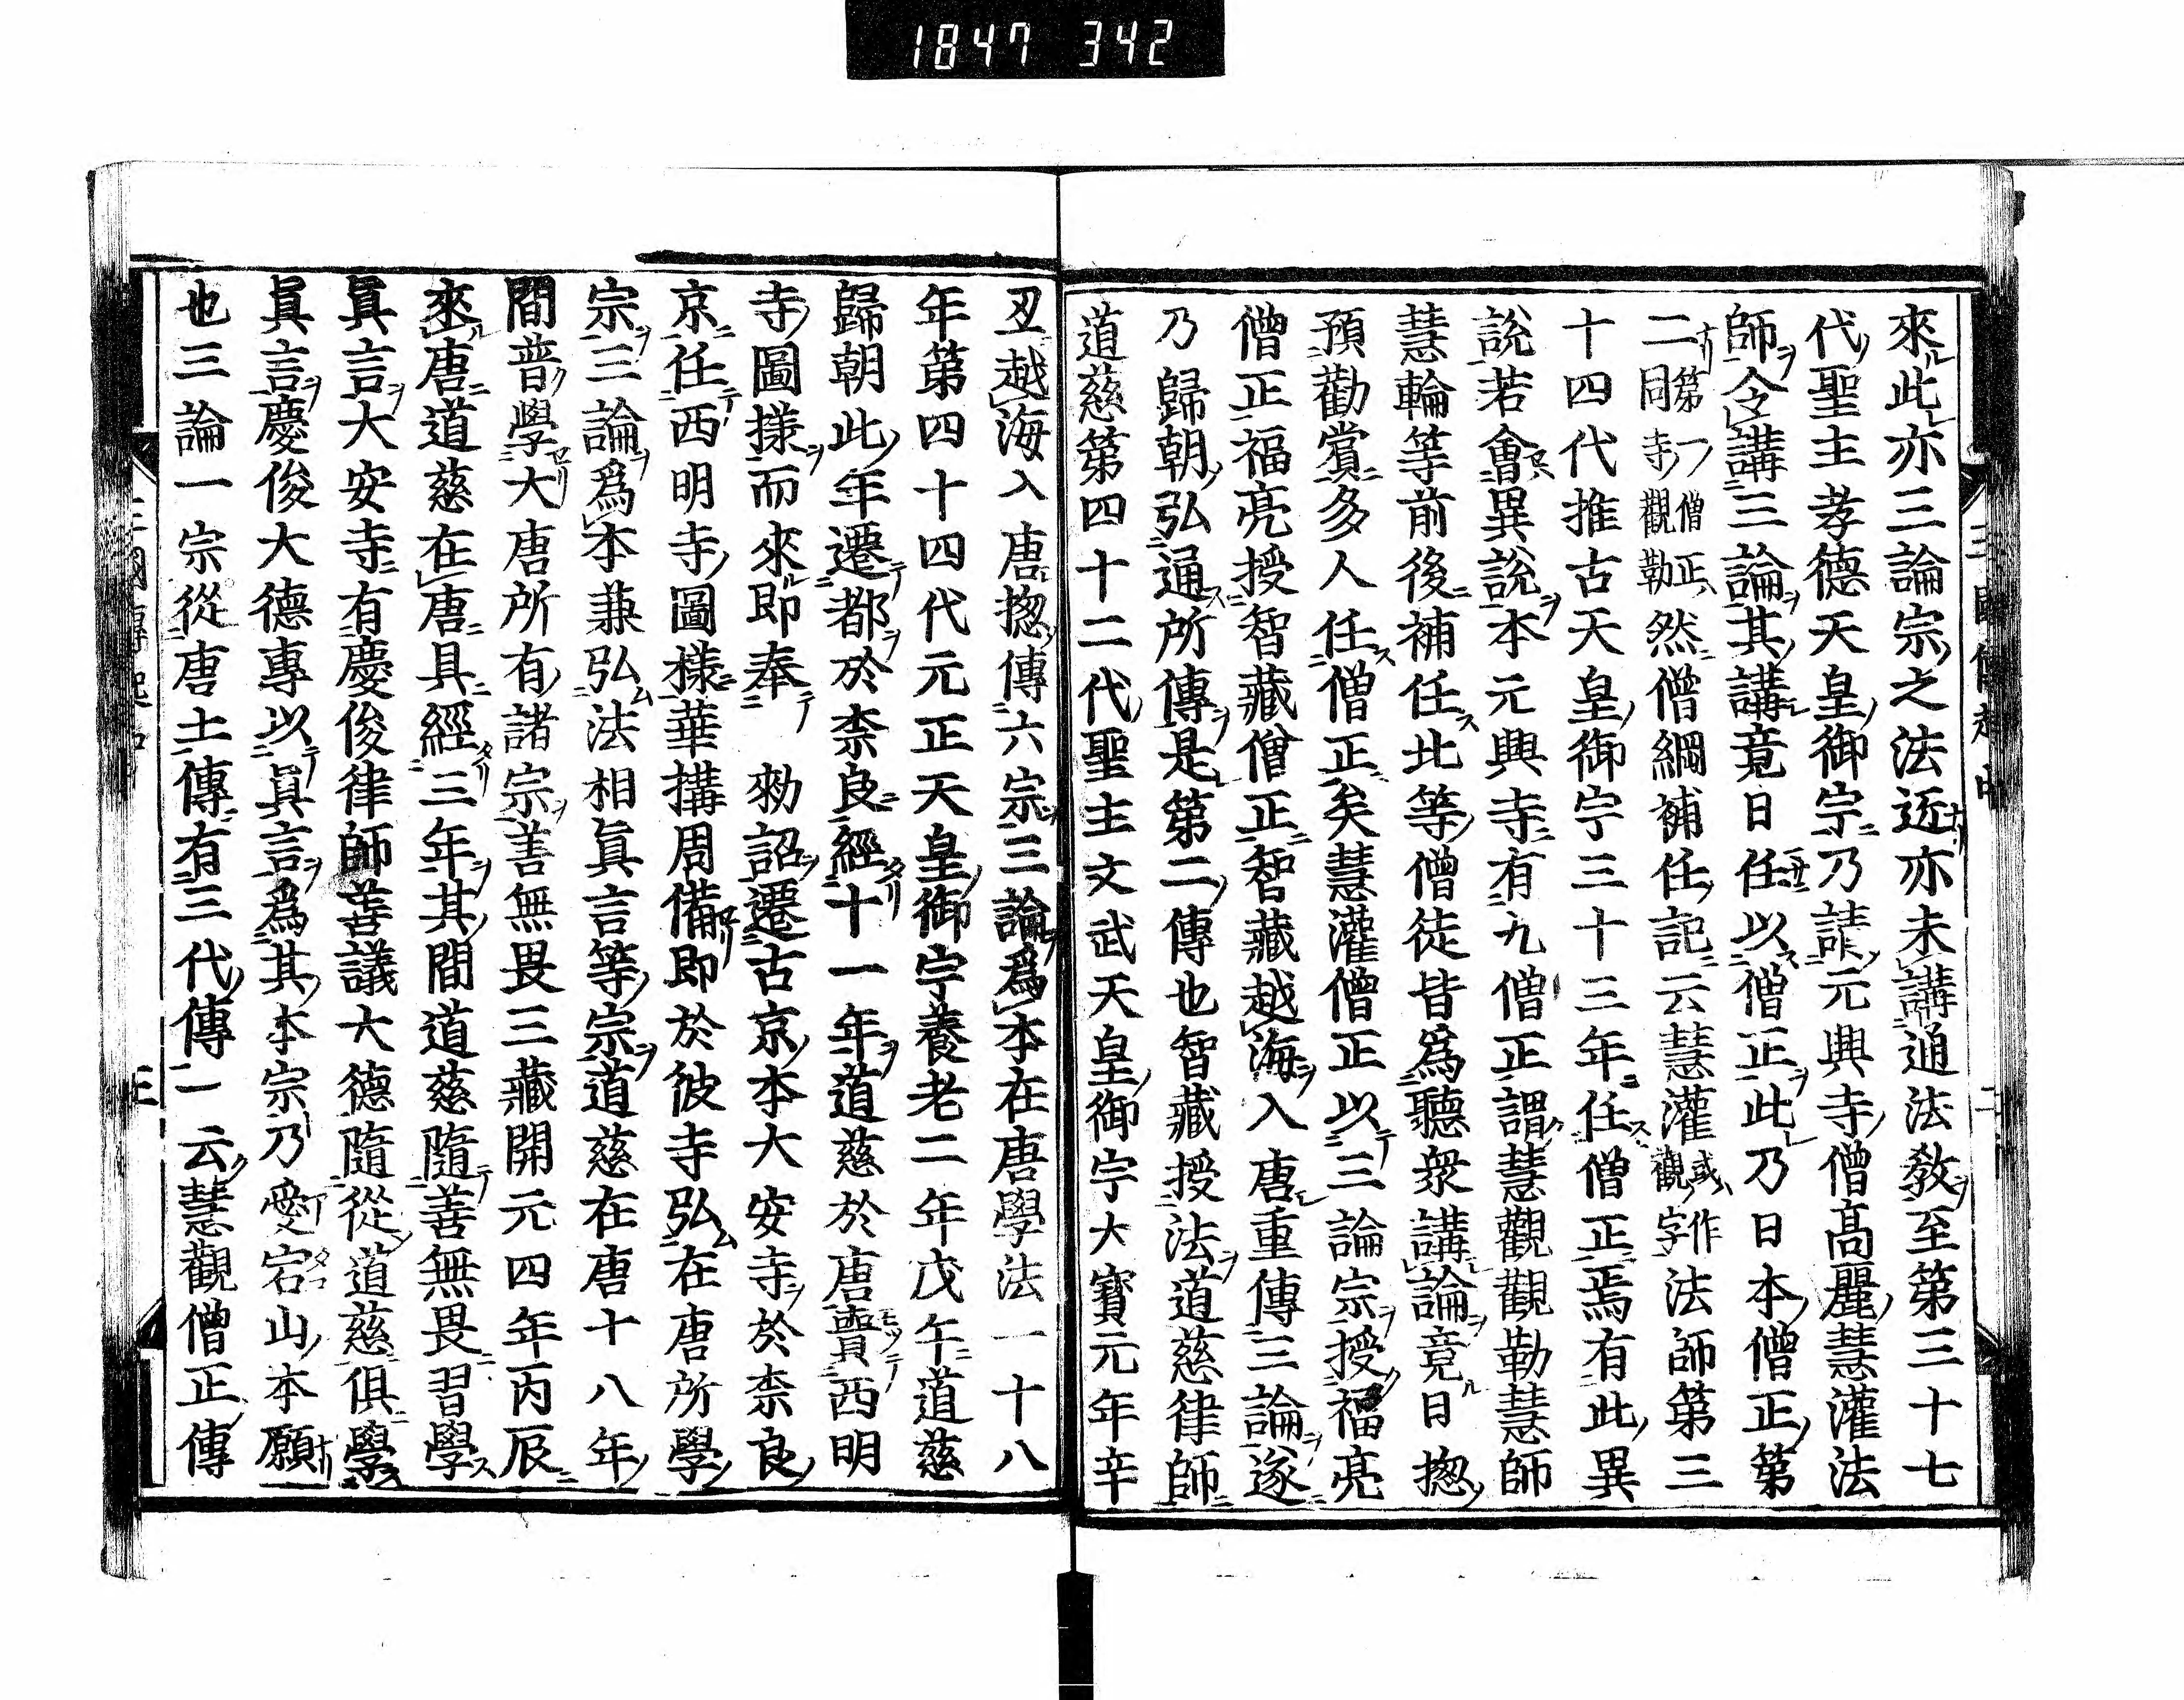 1847 342
來此亦三論宗之法匠亦未講通法教至第三十七
代聖主孝德天皇御宗乃請元興寺僧高麗慧灌法
師令講三論其講竟日任以僧正此乃日本僧正第
二第一僧正同寺觀勒然僧綱補任記云慧灌或作觀字法師第三
十四代推古天皇御宇三十三年任僧正焉有此異
說若會異說本元興寺有九僧正謂慧觀觀勒慧師
慧輪等前後補任此等僧徒皆爲聽衆講論竟日揔
預勸賞多人任僧正矣慧灌僧正以三論宗授福亮
僧正福亮授智藏僧正智藏越海入唐重傳三論遂
乃歸朝弘通所傳是第二傳也智藏授法道慈律師
道慈第四十二代聖主文武天皇御宇大寶元年辛
丑越海入唐揔傳六宗三論爲本在唐學法一十八
年第四十四代元正天皇御宇養老二年戊午道慈
歸朝此年遷都於柰良經十一年道慈於唐賷西明
寺圖㨾而來即奉　勑詔遷古京本大安寺於柰良
京任西明寺圖樣華搆周備即於彼寺弘在唐所學
宗三論爲本兼弘法相眞言等宗道慈在唐十八年
間普學大唐所有諸宗善無畏三藏開元四年丙辰
來唐道慈在唐具經三年其間道慈隨善無畏習學
眞言大安寺有慶俊律師善議大德隨從道慈俱學
眞言慶俊大德專以眞言爲其本宗乃愛宕山本願
也三論一宗從唐土傳有三代傳一云慧觀僧正傳